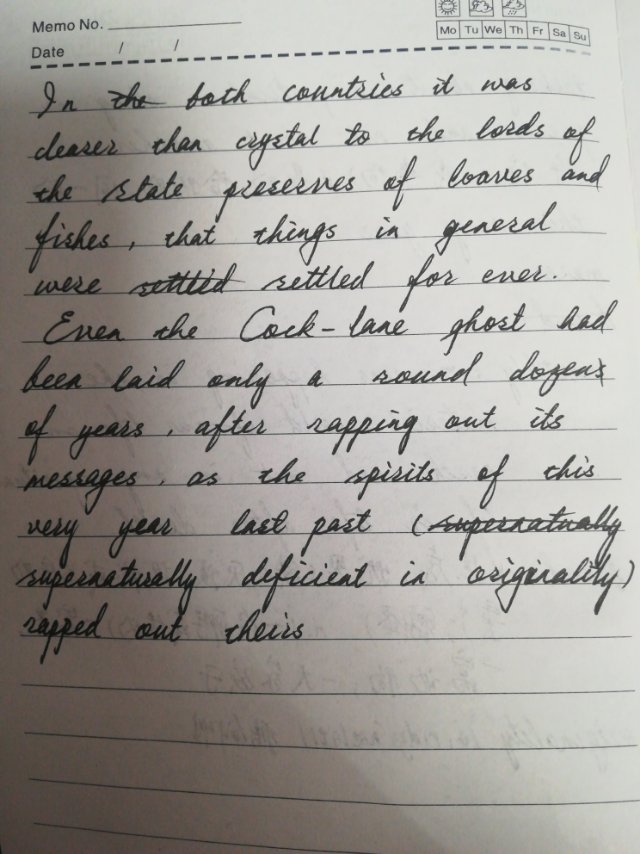 Memo No.
Mo Tu We Th Fr Sa Su
Date / /
In the both countries it was
clearer than crystal to the lords of
the state preserves of loaves and
fishes, that things in general
were settlid settled for ever.
Even the Cock-lane ghost had
been laid only a round dozens
of years, after rapping out its
messages, as the spirits of this
very year last past (supernatually
supernaturally deficient in originality)
rapped out theirs